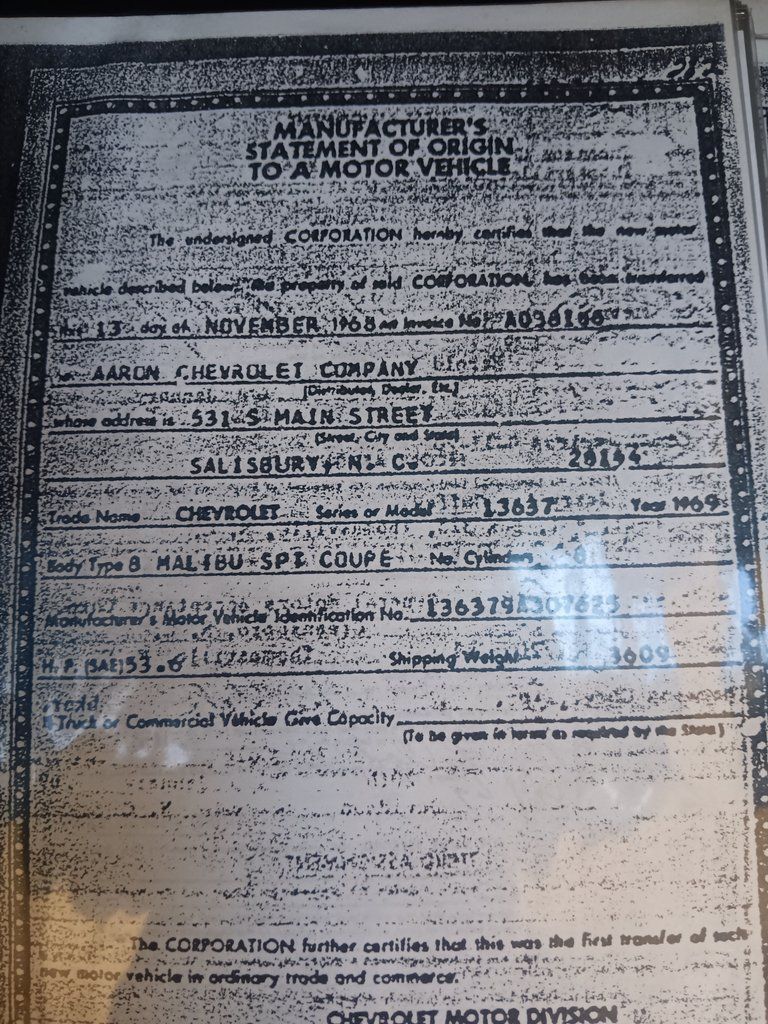 MANUFACTURER'S
STATEMENT OF ORIGIN
TO A MOTOR VEHICLE
The undersigned CORPORATION hereby certifies that the new motor
vehicle described below, the property of said CORPORATION, has been transferred
this 13 day of NOVEMBER 1968 on Invoice No.
to AARON CHEVROLET COMPANY
(Distributor, Dealer, Etc.)
whose address is 531 S MAIN STREET
(Street, City and State)
SALISBURY, N. C.
Trade Name CHEVROLET Series or Model 13637 Year 1969
Body Type 8 MALIBU SPT COUPE No. Cylinders 8
Manufacturer's Motor Vehicle Identification No.
H. P. (SAE) 53.6 Shipping Weight 3609
If Truck or Commercial Vehicle Give Capacity
(To be given in terms as required by the State)
The CORPORATION further certifies that this was the first transfer of such
new motor vehicle in ordinary trade and commerce.
CHEVROLET MOTOR DIVISION